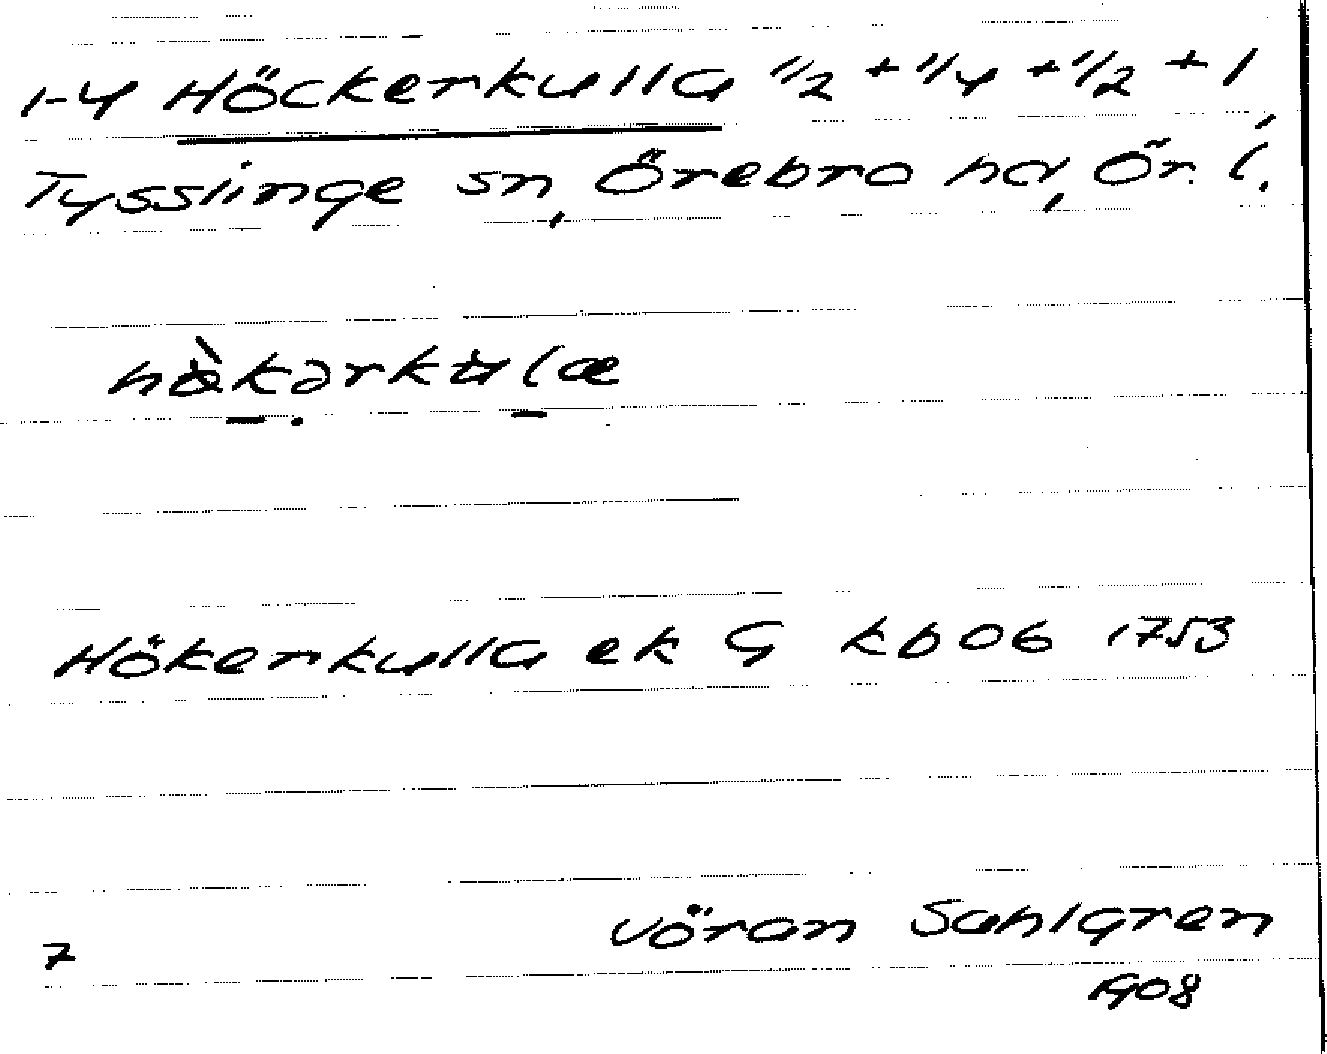 1-4 Höckerkulla 1/2 + 1/4 + 1/2 + 1,
Tysslinge sn, Örebro hd, Ör. l.
Hökerkulla ek G kb 06 1753
Jöran Sahlgren
7
1908